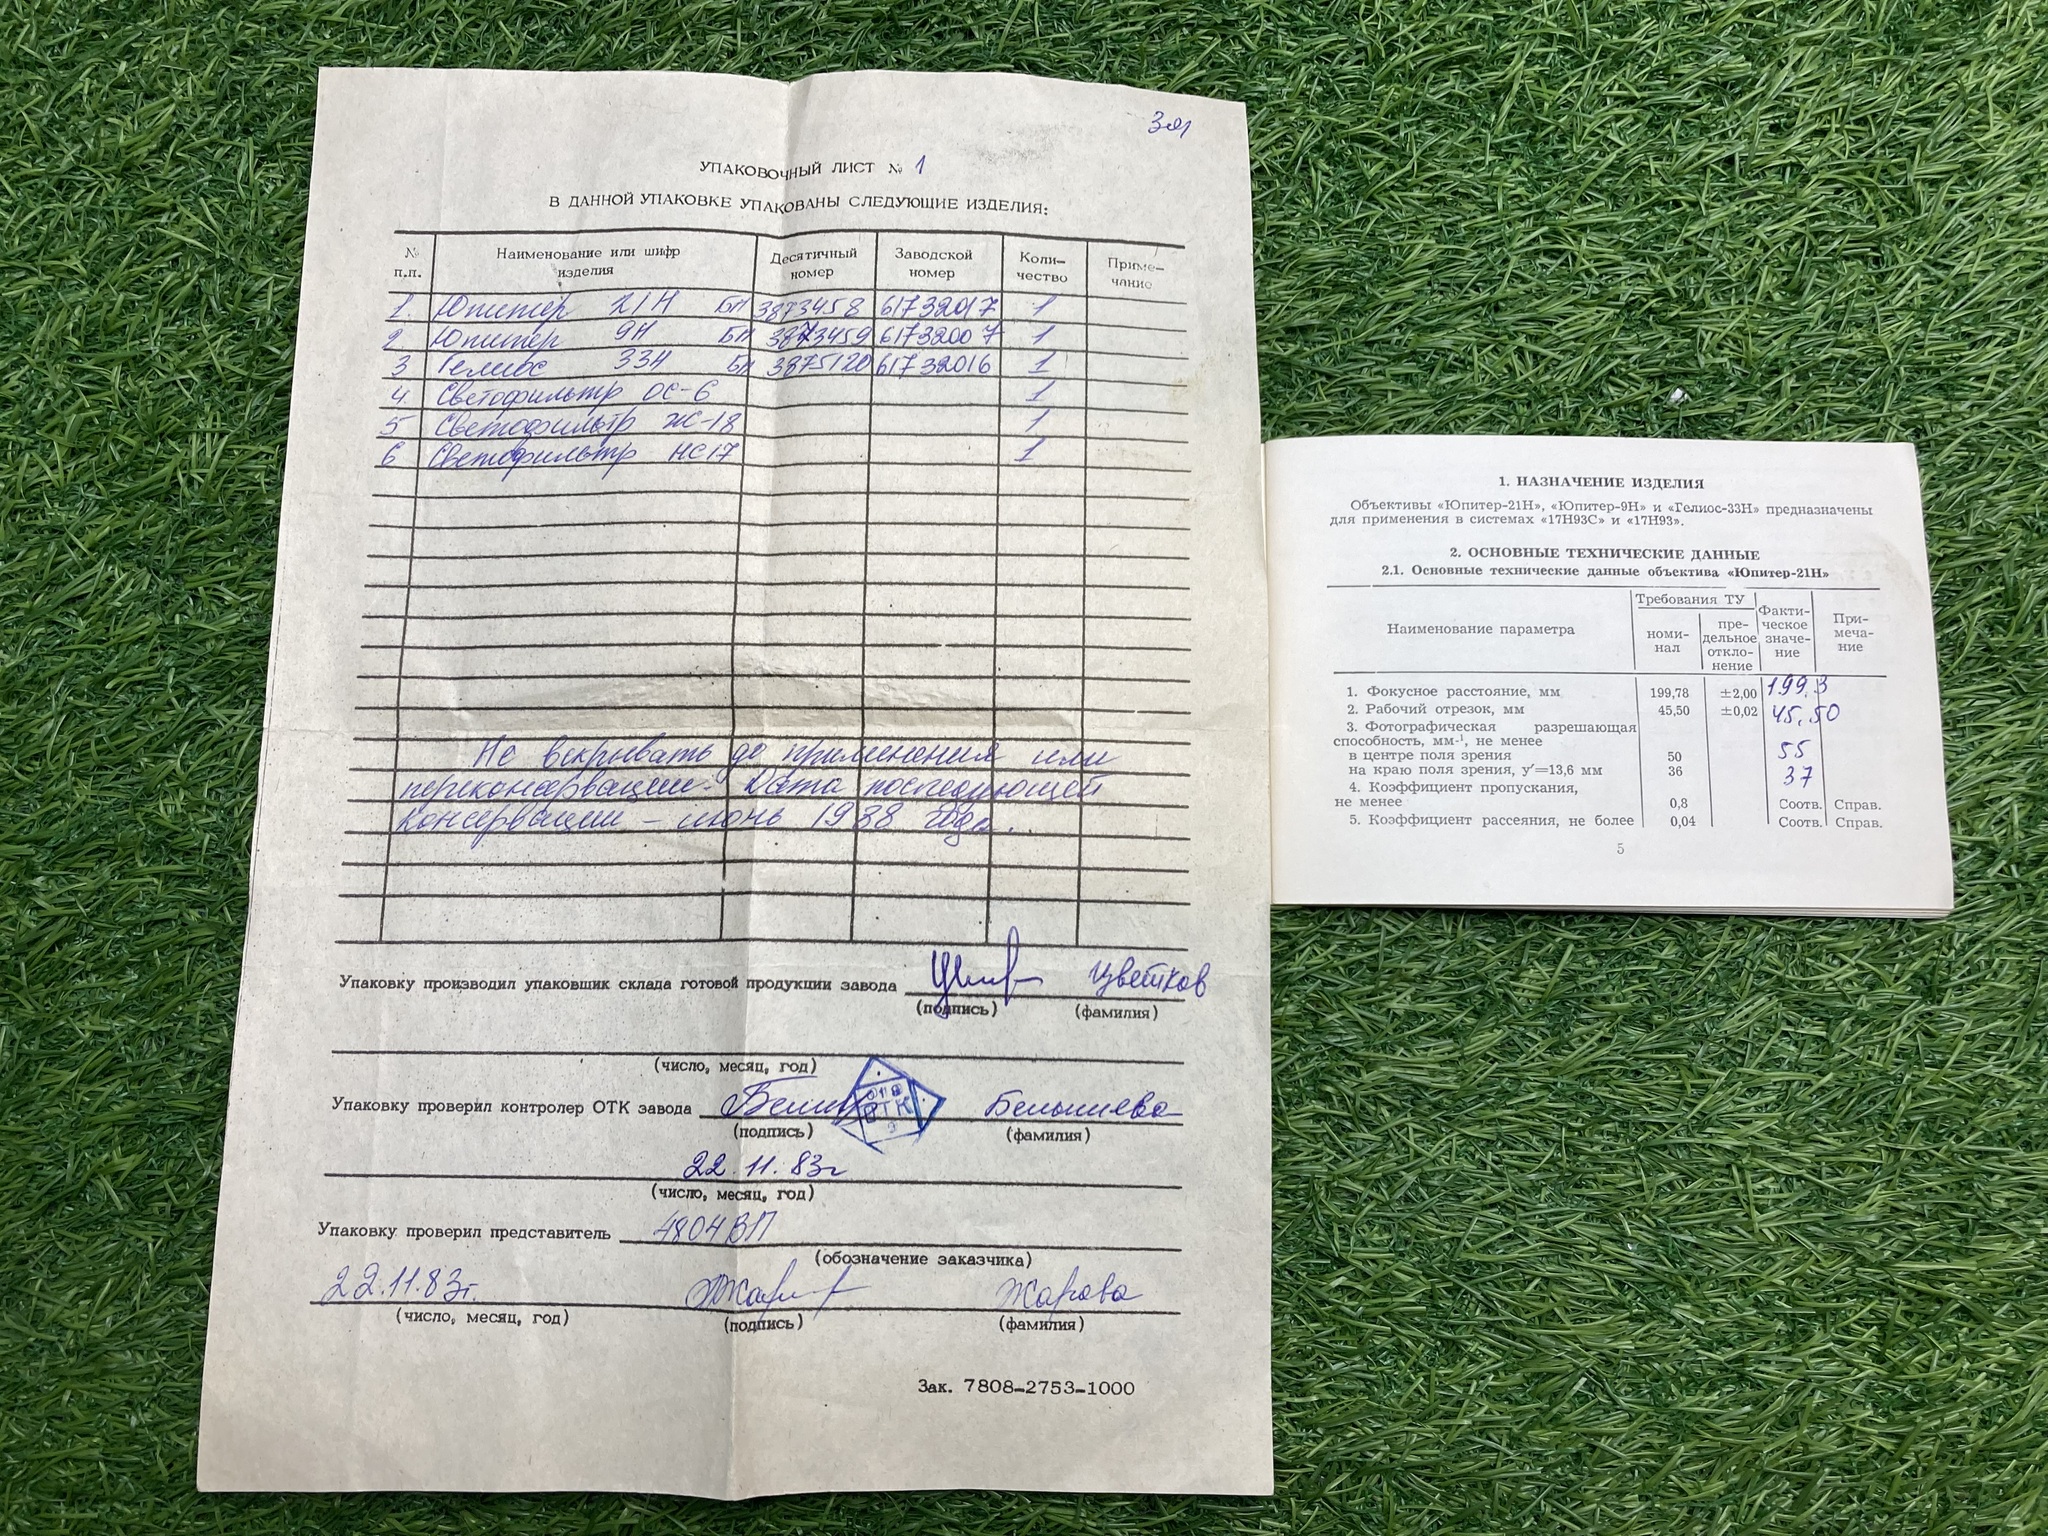 УПАКОВОЧНЫЙ ЛИСТ № 1
В ДАННОЙ УПАКОВКЕ УПАКОВАНЫ СЛЕДУЮЩИЕ ИЗДЕЛИЯ:
№ п.п. Наименование или шифр изделия Десятичный номер Заводской номер Коли-чество Приме-чание
1. Юпитер 21Н БЛ 3873458 61732017 1
2 Юпитер 9Н БЛ 3873459 61732007 1
3 Гелиос 33Н БЛ 3875120 61732016 1
4 Светофильтр ОС-6 1
5 Светофильтр ЖС-18 1
6 Светофильтр НС17 1
Не вскрывать до применения или
переконсервации. Дата последующей
консервации – июнь 1988 года.
Упаковку производил упаковщик склада готовой продукции завода Цветков
(подпись) (фамилия)
(число, месяц, год)
Упаковку проверил контролер ОТК завода
(подпись) (фамилия)
22.11.83г
(число, месяц, год)
Упаковку проверил представитель 4804ВП
(обозначение заказчика)
22.11.83г. Жарова
(число, месяц, год) (подпись) (фамилия)
Зак. 7808-2753-1000
1. НАЗНАЧЕНИЕ ИЗДЕЛИЯ
Объективы «Юпитер-21Н», «Юпитер-9Н» и «Гелиос-33Н» предназначены
для применения в системах «17Н93С» и «17Н93».
2. ОСНОВНЫЕ ТЕХНИЧЕСКИЕ ДАННЫЕ
2.1. Основные технические данные объектива «Юпитер-21Н»
Наименование параметра
Требования ТУ
номи-
нал
пре-
дельное
откло-
нение
Факти-
ческое
значе-
ние
При-
меча-
ние
1. Фокусное расстояние, мм 199,78 ±2,00 199,3
2. Рабочий отрезок, мм 45,50 ±0,02 45,50
3. Фотографическая разрешающая
способность, мм-¹, не менее
в центре поля зрения 50 55
на краю поля зрения, у′=13,6 мм 36 37
4. Коэффициент пропускания,
не менее 0,8 Соотв. Справ.
5. Коэффициент рассеяния, не более 0,04 Соотв. Справ.
5